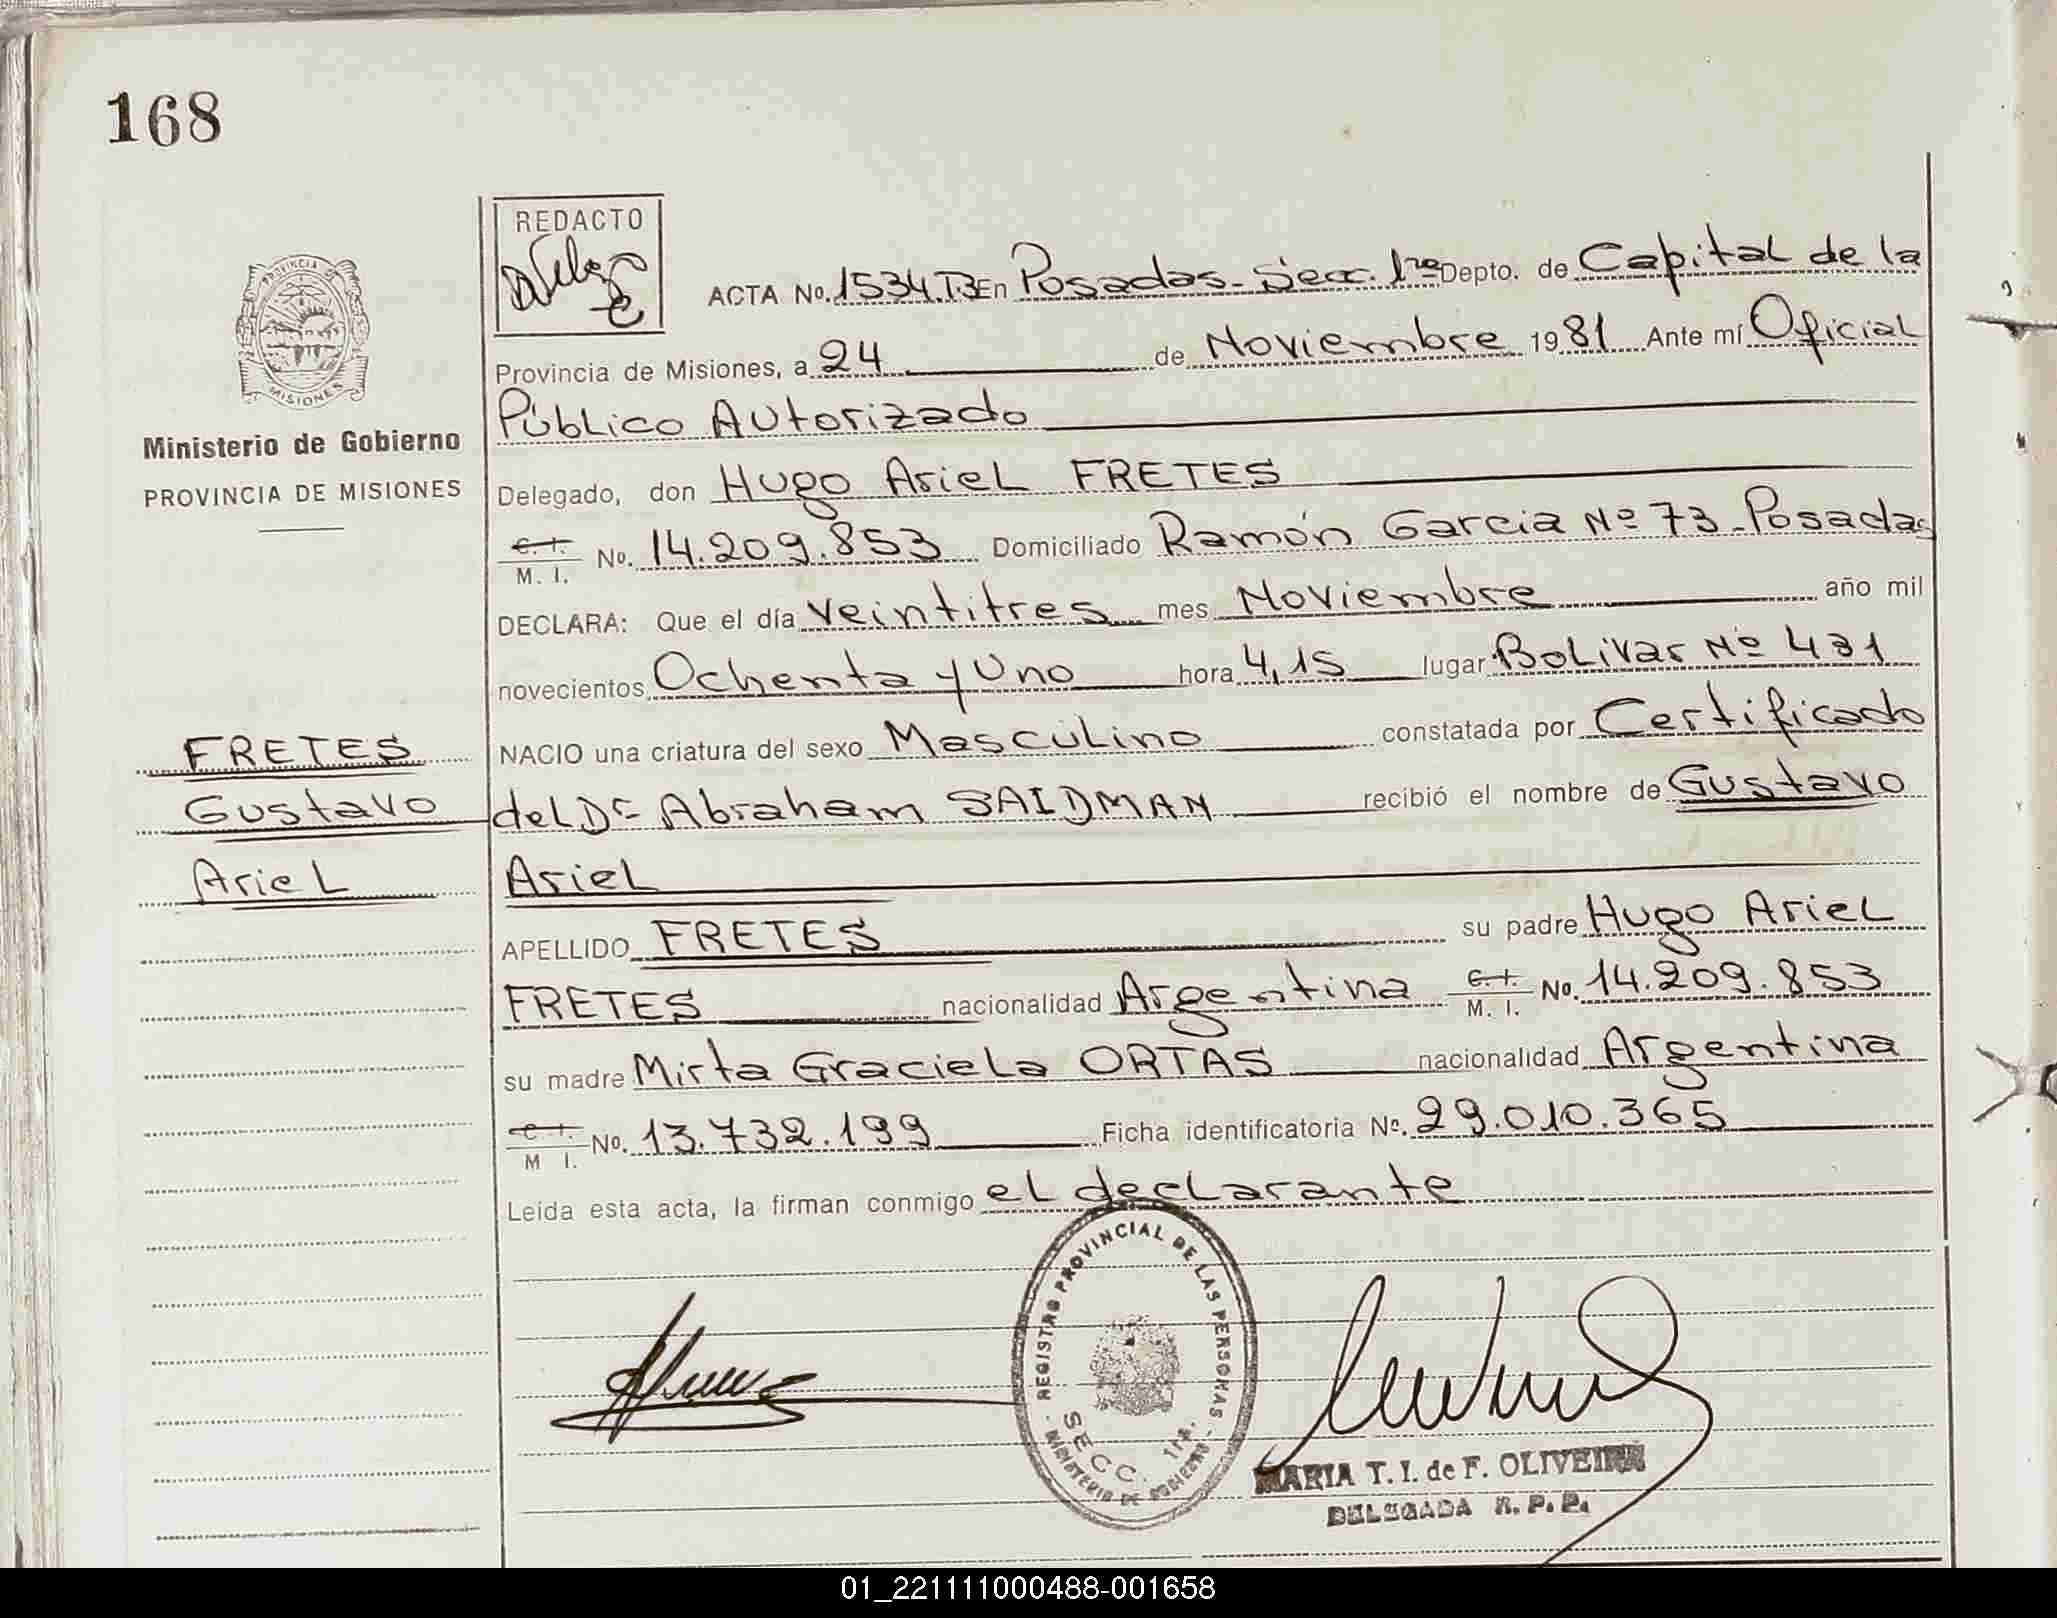 168
REDACTO
PROVINCIA DE
MISIONES
Ministerio de Gobierno
PROVINCIA DE MISIONES
ACTA No. 1534.T.3 En Posadas - Secc. 1ra Depto. de Capital de la
Provincia de Misiones, a 24 de Noviembre 1981 Ante mí Oficial
Público Autorizado
Delegado, don Hugo Ariel FRETES
C. I. M. I. No. 14.209.853 Domiciliado Ramón Garcia Nº 73 - Posadas
DECLARA: Que el día veintitres mes Noviembre año mil
novecientos Ochenta y Uno hora 4,15 lugar Bolivar Nº 431
NACIO una criatura del sexo Masculino constatada por Certificado
del Dr Abraham SAIDMAN recibió el nombre de Gustavo
Ariel
APELLIDO FRETES su padre Hugo Ariel
FRETES nacionalidad Argentina C. I. M. I. No. 14.209.853
su madre Mirta Graciela ORTAS nacionalidad Argentina
C. I. M I. No. 13.732.199 Ficha identificatoria No. 29.010.365
Leída esta acta, la firman conmigo el declarante
FRETES
Gustavo
Ariel
REGISTRO PROVINCIAL DE LAS PERSONAS
SECC. 1ra.
MINISTERIO DE GOBIERNO
MARIA T. I. de F. OLIVEIRA
DELEGADA R. P. P.
01_221111000488-001658